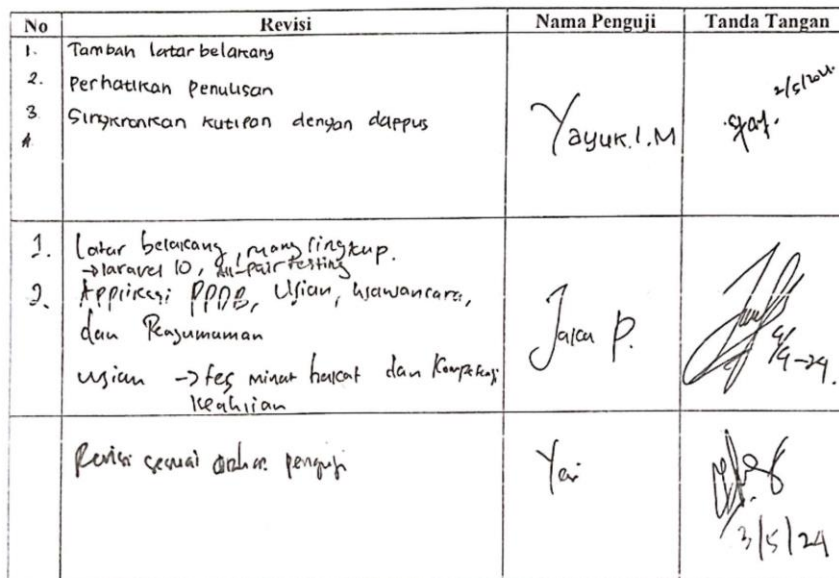 No Revisi Nama Penguji Tanda Tangan
1. Tambah latar belakang
2. Perhatikan penulisan
3 Singkronkan kutipan dengan dappus
4
Yayuk.I.M
1. Latar belakang, ruang lingkup.
→ laravel 10, All-pair testing
2. Applikasi PPDB, Ujian, wawancara,
dan Pengumuman
Ujian → tes minat bakat dan Kompetensi
keahlian
Jaka P.
4-24.
Revisi sesuai arahan penguji
3/5/24